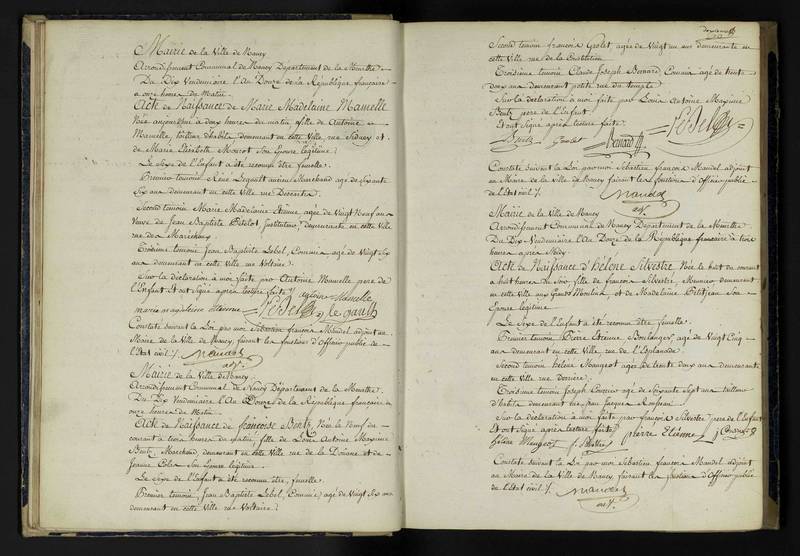 Mairie de la Ville de Nancy
Arrondissement Communal de Nancy Département de la Meurthe
Du Dix Vendemiaire l'An Douze de la République française
a onze heures du Matin
Acte de Naissance de Marie Madelaine Manuelle
Née aujourd'hui à deux heures du matin fille de Antoine
Manuelle, tailleur d'habits demeurant en cette Ville, rue Sidney et
de Marie Elisabeth son Epouse légitime
Le sexe de l'Enfant a été reconnu être femelle.
Premier temoin Marchand agé de soixante
Six ans demeurant en cette Ville rue Descartes
Second temoin Marie Madelaine Etienne, agée de Vingt Neuf ans
Veuve de Jean Baptiste Instituteur, demeurante en cette Ville
rue des Maréchaux
Troisieme temoin Jean Baptiste Lebel, Commis agé de Vingt Six
ans demeurant en cette Ville rue Voltaire
Sur la déclaration à moi faite par Antoine Manuelle pere de
l'Enfant Et ont Signé après lecture faite /. antoine Manuelle
maria magdelaine etienne Lebel le gault
Constaté suivant la Loi par moi Sébastien françois Mandel adjoint au
Maire de la Ville de Nancy, faisant les fonctions d'Officier public de
l'Etat civil /. Mandel
adj.
Mairie de la Ville de Nancy
Arrondissement Communal de Nancy Département de la Meurthe
Du Dix Vendemiaire l'An Douze de la République française a
onze heures du Matin
Acte de Naissance de françoise Née le Neuf du
courant à trois heures du matin, fille de Louis Antoine Maxime
Marchand, demeurant en cette Ville rue de la Douane et de
Jeanne son Epouse légitime
Le sexe de l'Enfant a été reconnu être femelle.
Premier temoin, Jean Baptiste Lebel, Commis agé de Vingt Six ans
demeurant en cette Ville rue Voltaire
Second temoin françois Grolet, agé de Vingt un ans demeurant en
cette Ville rue de la Constitution
Troisieme temoin Claude Joseph Bernard Commis agé de trente
deux ans demeurant petite rue du temple
Sur la déclaration à moi faite par Louis Antoine Maxime
pere de l'Enfant
Et ont Signé après lecture faite
Grolet Bernard Lebel
Constaté suivant la Loi par moi Sébastien françois Mandel adjoint
au Maire de la Ville de Nancy faisant les fonctions d'Officier public
de l'Etat civil /. Mandel
adj.
Mairie de la Ville de Nancy
Arrondissement Communal de Nancy Département de la Meurthe
Du Dix Vendemiaire l'An Douze de la République française à trois
heures après Midy
Acte de Naissance d'Hélène Silvestre Née le huit du courant
à huit heures du Soir fille de françois Silvestre, Meunier demeurant
en cette Ville aux Grands Moulins, et de Madelaine Petitjean Son
Epouse légitime
Le sexe de l'Enfant a été reconnu être femelle.
Premier temoin Pierre Etienne, Boulanger, agé de Vingt Cinq
ans demeurant en cette Ville, rue de l'Esplanade
Second temoin hélène Mangeot agée de trente deux ans demeurante
en cette Ville rue derrière
Troisieme temoin Joseph agé de Soixante Sept ans tailleur
d'habits demeurant rue Jean Jacques Rousseau
Sur la déclaration à moi faite par françois Silvestre pere de l'Enfant
Et ont Signé après lecture faite
hélène Mangeot pierre Etienne
Constaté suivant la Loi par moi Sébastien françois Mandel adjoint
au Maire de la Ville de Nancy, faisant les fonctions d'Officier public
de l'Etat civil /. Mandel
adj.